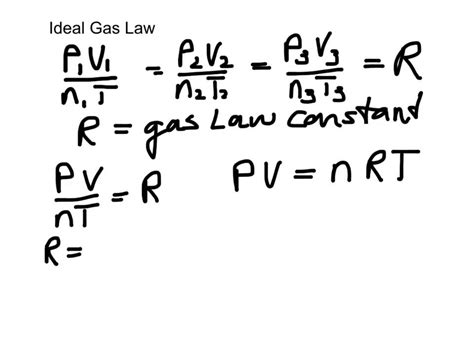 Ideal Gas Law
P₁V₁/n₁T = P₂V₂/n₂T₂ = P₃V₃/n₃T₃ = R
R = gas Law constant
PV/nT = R PV = nRT
R =